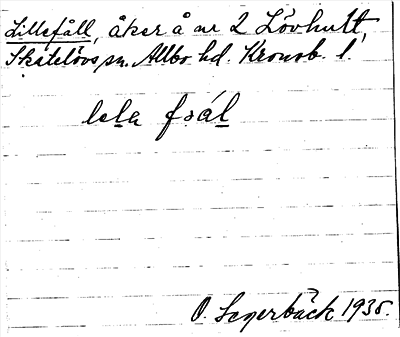 Lillefäll, åker å nr 2 Lövhult,
Skatelövs sn. Allbo hd. Kronob. l.
lela fsál
O. Segerbäck 1935.